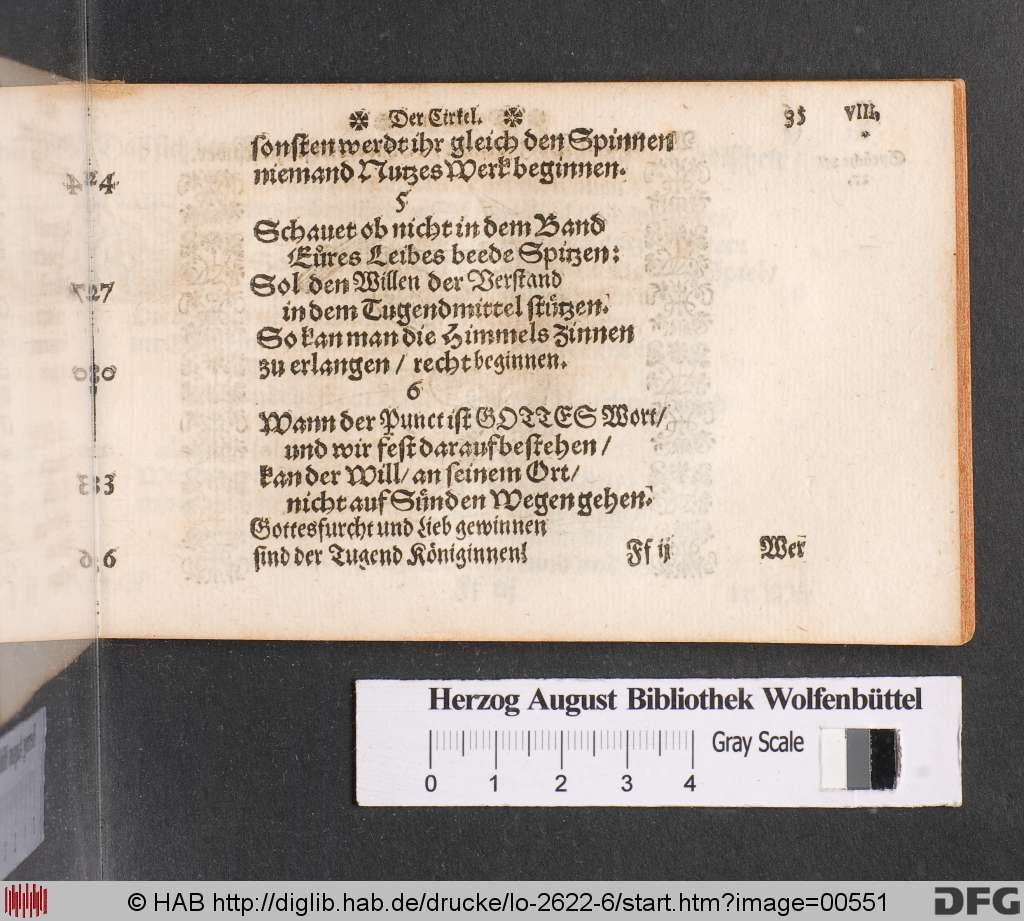 Der Cirkel. 35 VIII.
sonsten werdt ihr gleich den Spinnen
niemand Nutzes Werk beginnen.
5
Schauet ob nicht in dem Band
Eůres Leibes beede Spitzen:
Sol den Willen der Verstand
in dem Tugendmittel stůtzen.
So kan man die Himmels Zinnen
zu erlangen / recht beginnen.
6
Wann der Punct ist GOTTES Wort/
und wir fest darauf bestehen /
kan der Will/ an seinem Ort/
nicht auf Sůnden Wegen gehen.
Gottesfurcht und Lieb gewinnen
sind der Tugend Königinnen!
Ff ij Wer
Herzog August Bibliothek Wolfenbüttel
Gray Scale
0 1 2 3 4
© HAB http://diglib.hab.de/drucke/lo-2622-6/start.htm?image=00551
DFG